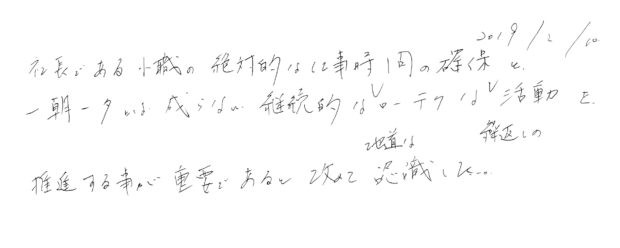 2019/2/10
社長である小職の絶対的な仕事時間の確保と、
一朝一夕には成らない継続的なローテクな活動を、
地道な 繰返しの
推進する事が重要であると改めて認識した…